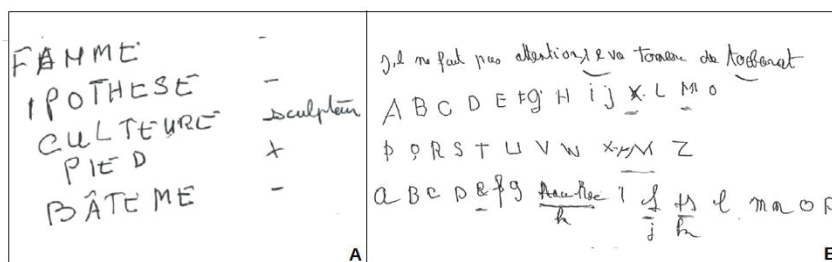 FAMME -
IPOTHESE -
CULTEURE sculpteur
PIED +
BÂTEME -
A
il ne fait pas attention, va du
A B C D E F g H i j K L M O
P Q R S T U V W X Z
a B C D e f g h i j k l m n o p
B